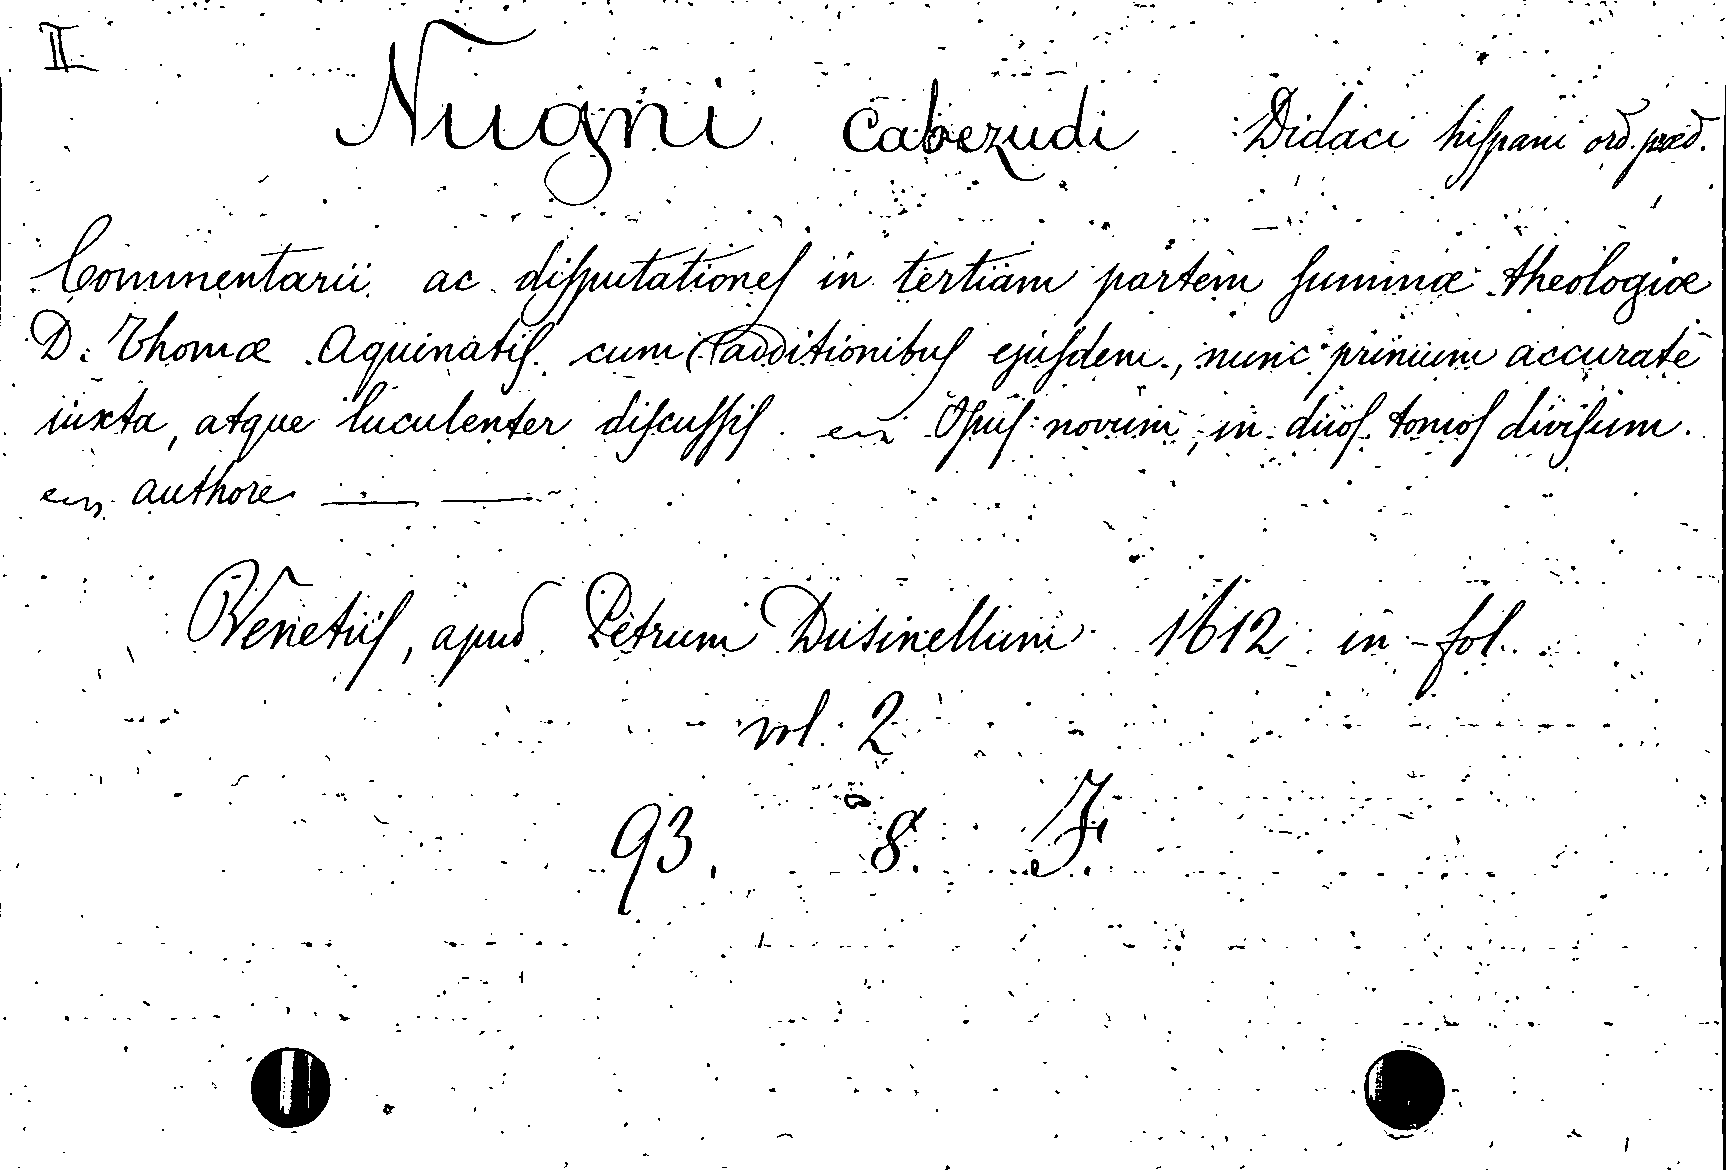 II
Nugni Cabezudi Didaci hiſpani ord. præd.
Commentarii ac diſputationeſ in tertiam partem ſummæ theologiæ
D. Thomæ Aquinatiſ cum additionibuſ ejuſdem, nunc primum accuratè
iuxta, atque luculenter diſcuſſiſ Opuſ novum, in duoſ tomoſ diviſum.
authore — —
Venetiiſ, apud Petrum Dusinellum 1612 in-fol.
vol. 2
93. 8. F.